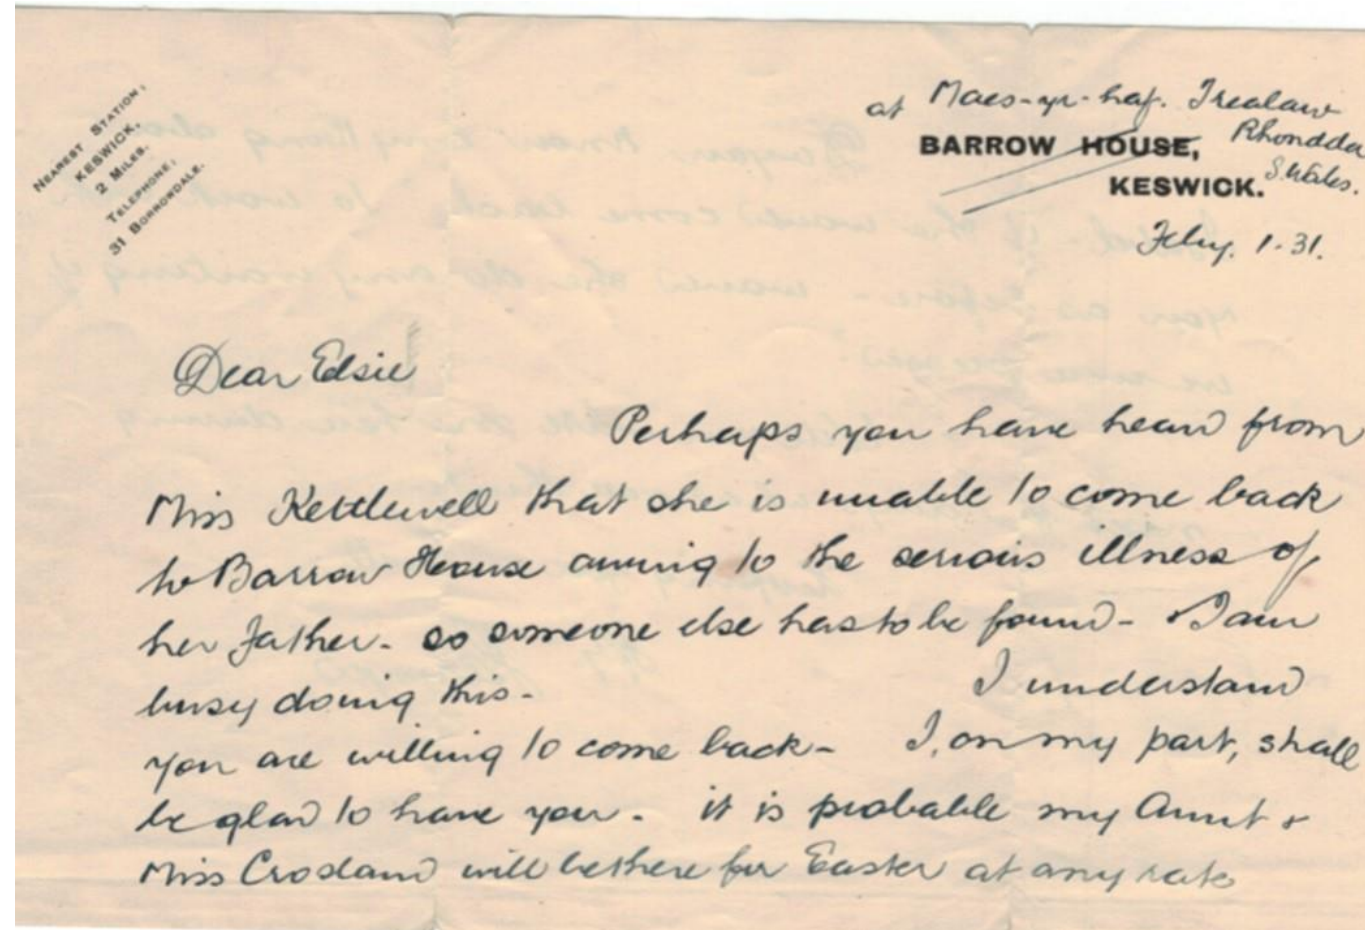 NEAREST STATION,
KESWICK.
2 MILES.
TELEPHONE,
31 BORROWDALE.
at Maes-yr-haf. Trealaw
Rhondda
BARROW HOUSE,
S. Wales.
KESWICK.
Feby. 1. 31.
Dear Elsie
Perhaps you have heard from
Miss Kettlewell that she is unable to come back
to Barrow House owing to the serious illness of
her father - so someone else has to be found - & I am
busy doing this -
I understand
you are willing to come back - I, on my part, shall
be glad to have you. it is probable my Aunt &
Miss Crosland will be there for Easter at any rate